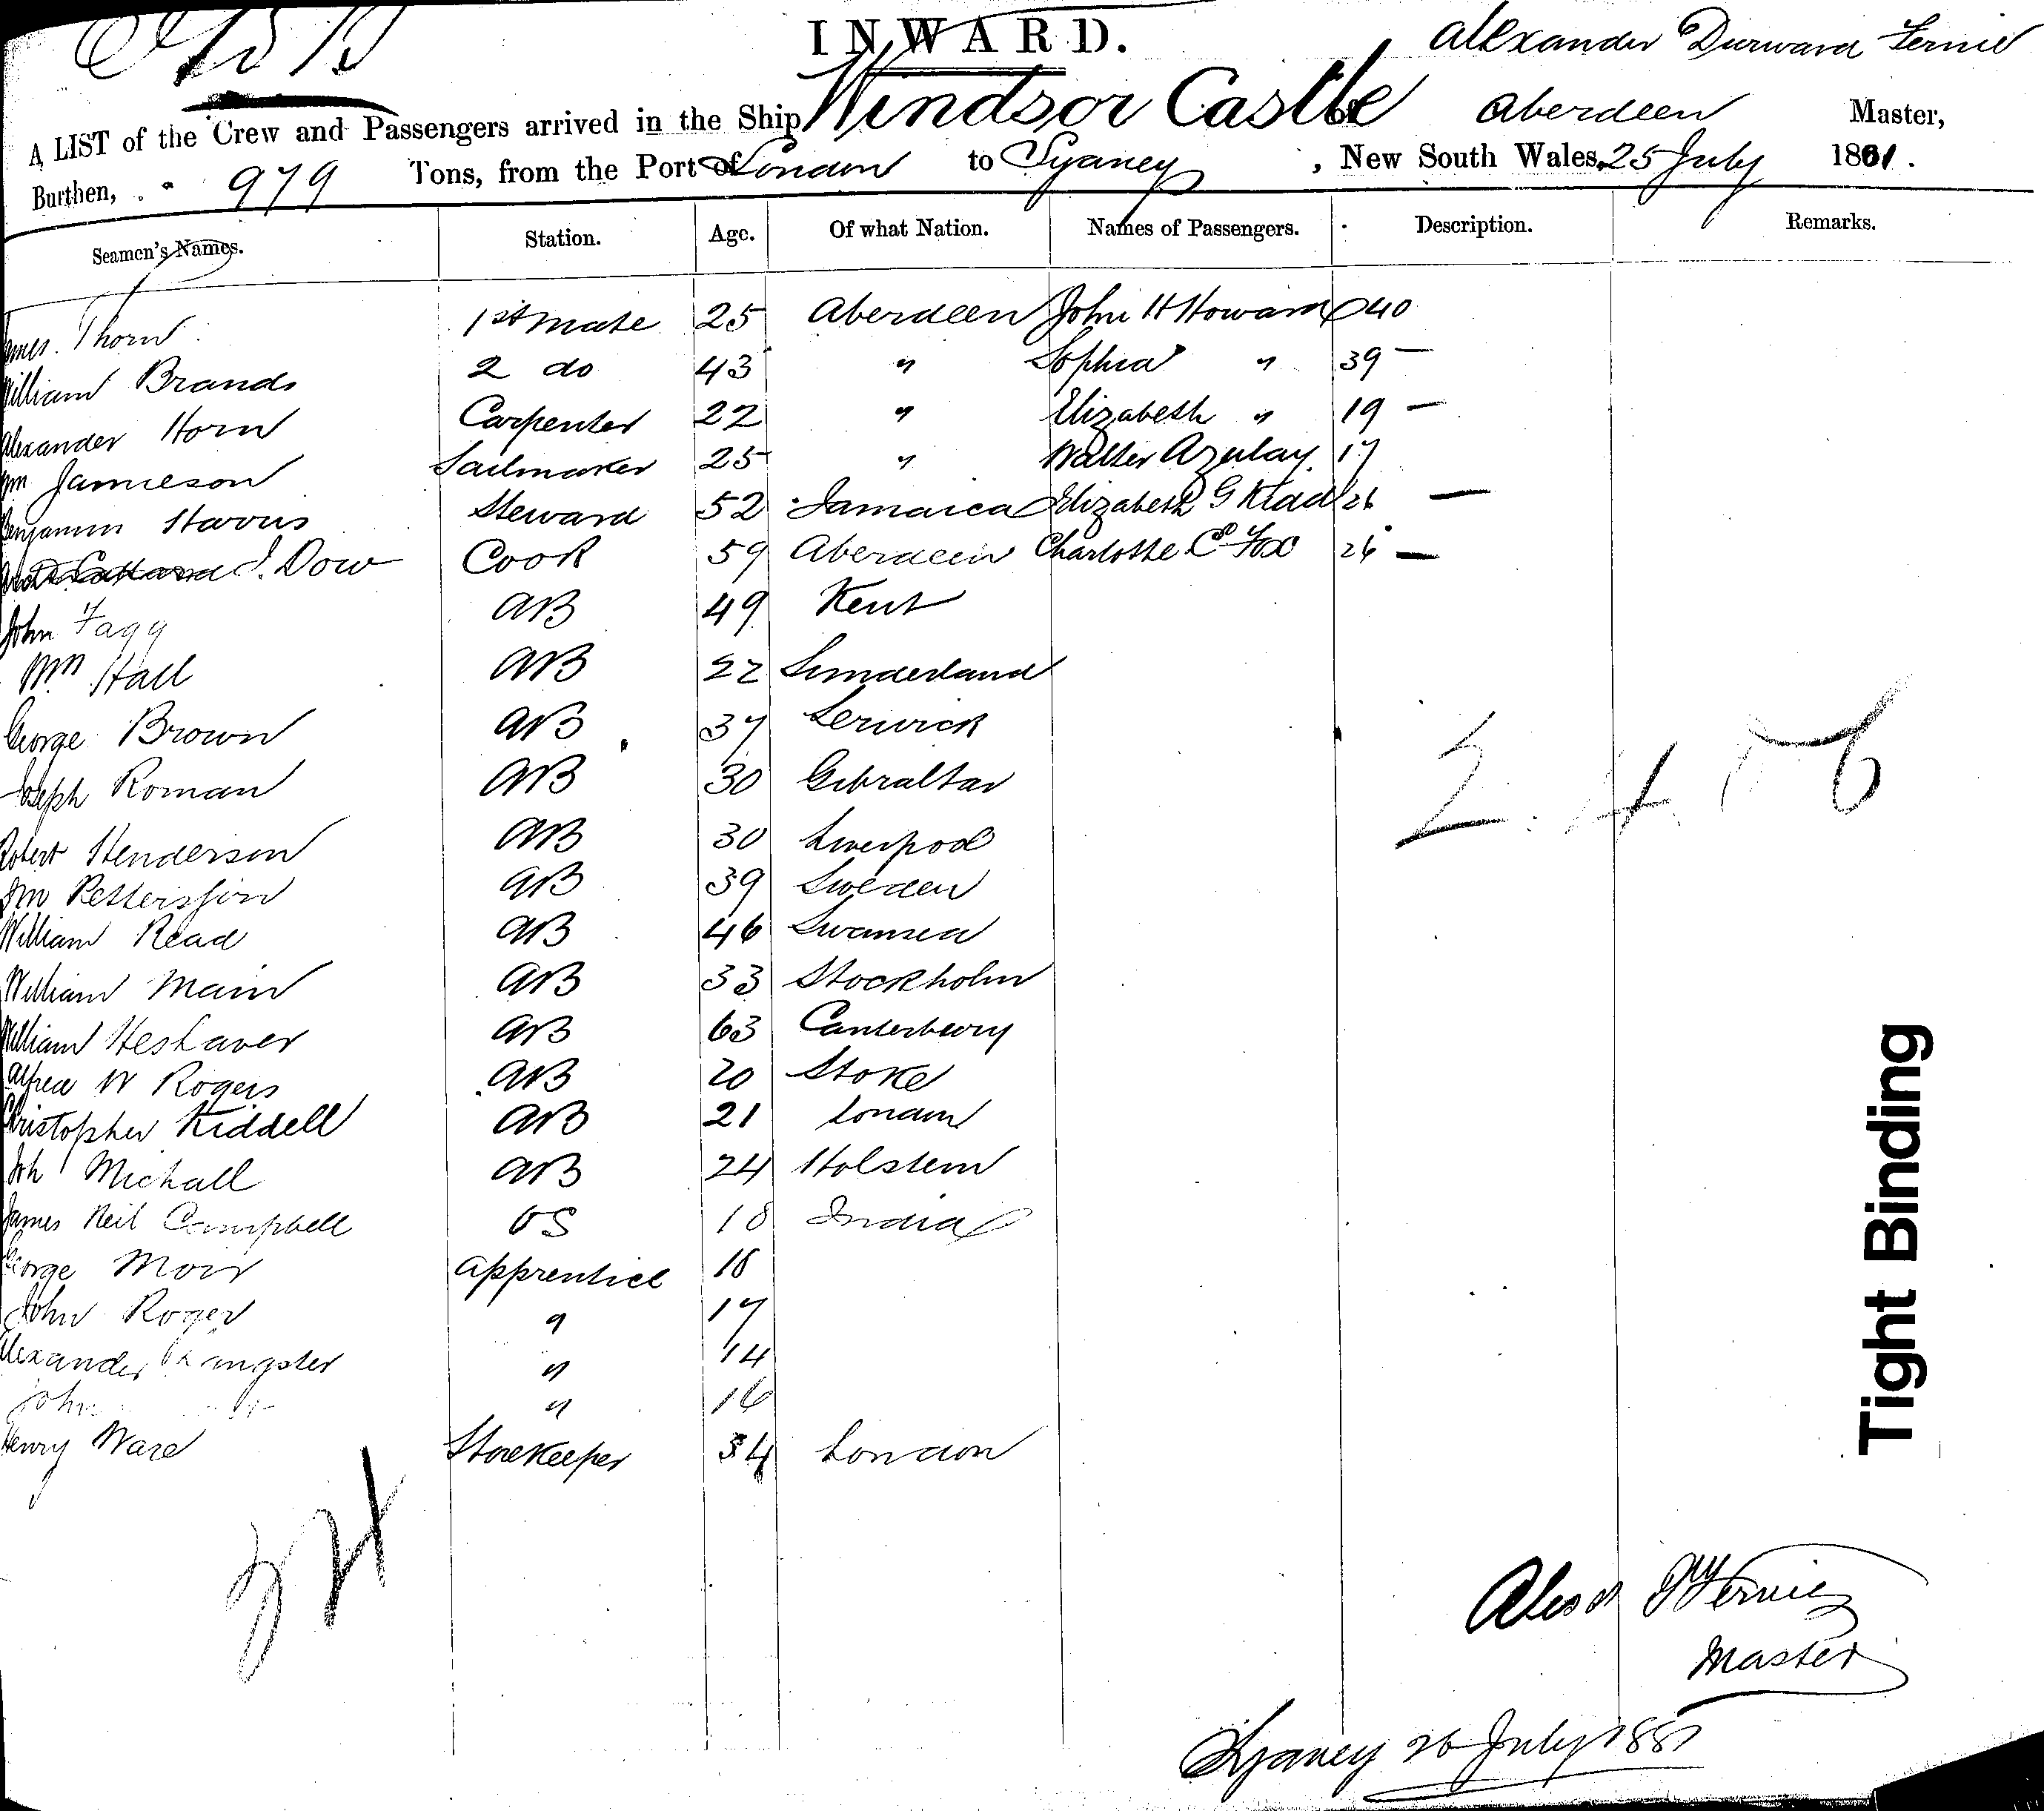 INWARD.
Alexander Durward Fernie
A LIST of the Crew and Passengers arrived in the Ship Windsor Castle of Aberdeen Master,
Burthen, 979 Tons, from the Port of London to Sydney, New South Wales, 25 July 1881.
Seamen's Names. Station. Age. Of what Nation. Names of Passengers. Description. Remarks.
James Thorn 1st mate 25 Aberdeen John H Howard 40
William Brands 2 do 43 " Sophia " 39 —
Alexander Horn Carpenter 22 " Elizabeth " 19 —
Wm Jamieson Sailmaker 25 " Walter Azulay 17
Benjamin Steward 52 Jamaica Elizabeth G Kidd 26 —
J. Dow Cook 59 Aberdeen Charlotte C Fox 26 —
John Fagg AB 49 Kent
Wm Hall AB 22 Sunderland
George Brown AB 37 Lerwick
Joseph Roman AB 30 Gibraltar
Robert Henderson AB 30 Liverpool
Pettersson AB 39 Sweden
William Read AB 46 Swansea
William Main AB 33 Stockholm
William Heshaver AB 63 Canterbury
Alfred W Rogers AB 20 Stoke
Christopher Kiddell AB 21 London
Joh Michall AB 24 Holstein
James Neil Campbell OS 18 India
George Moir Apprentice 18
John Roger " 17
Alexander Sangster " 14
John " 16
Henry Ware Storekeeper 34 London
24
Alex D Fernie
Master
Sydney 26 July 1881
Tight Binding